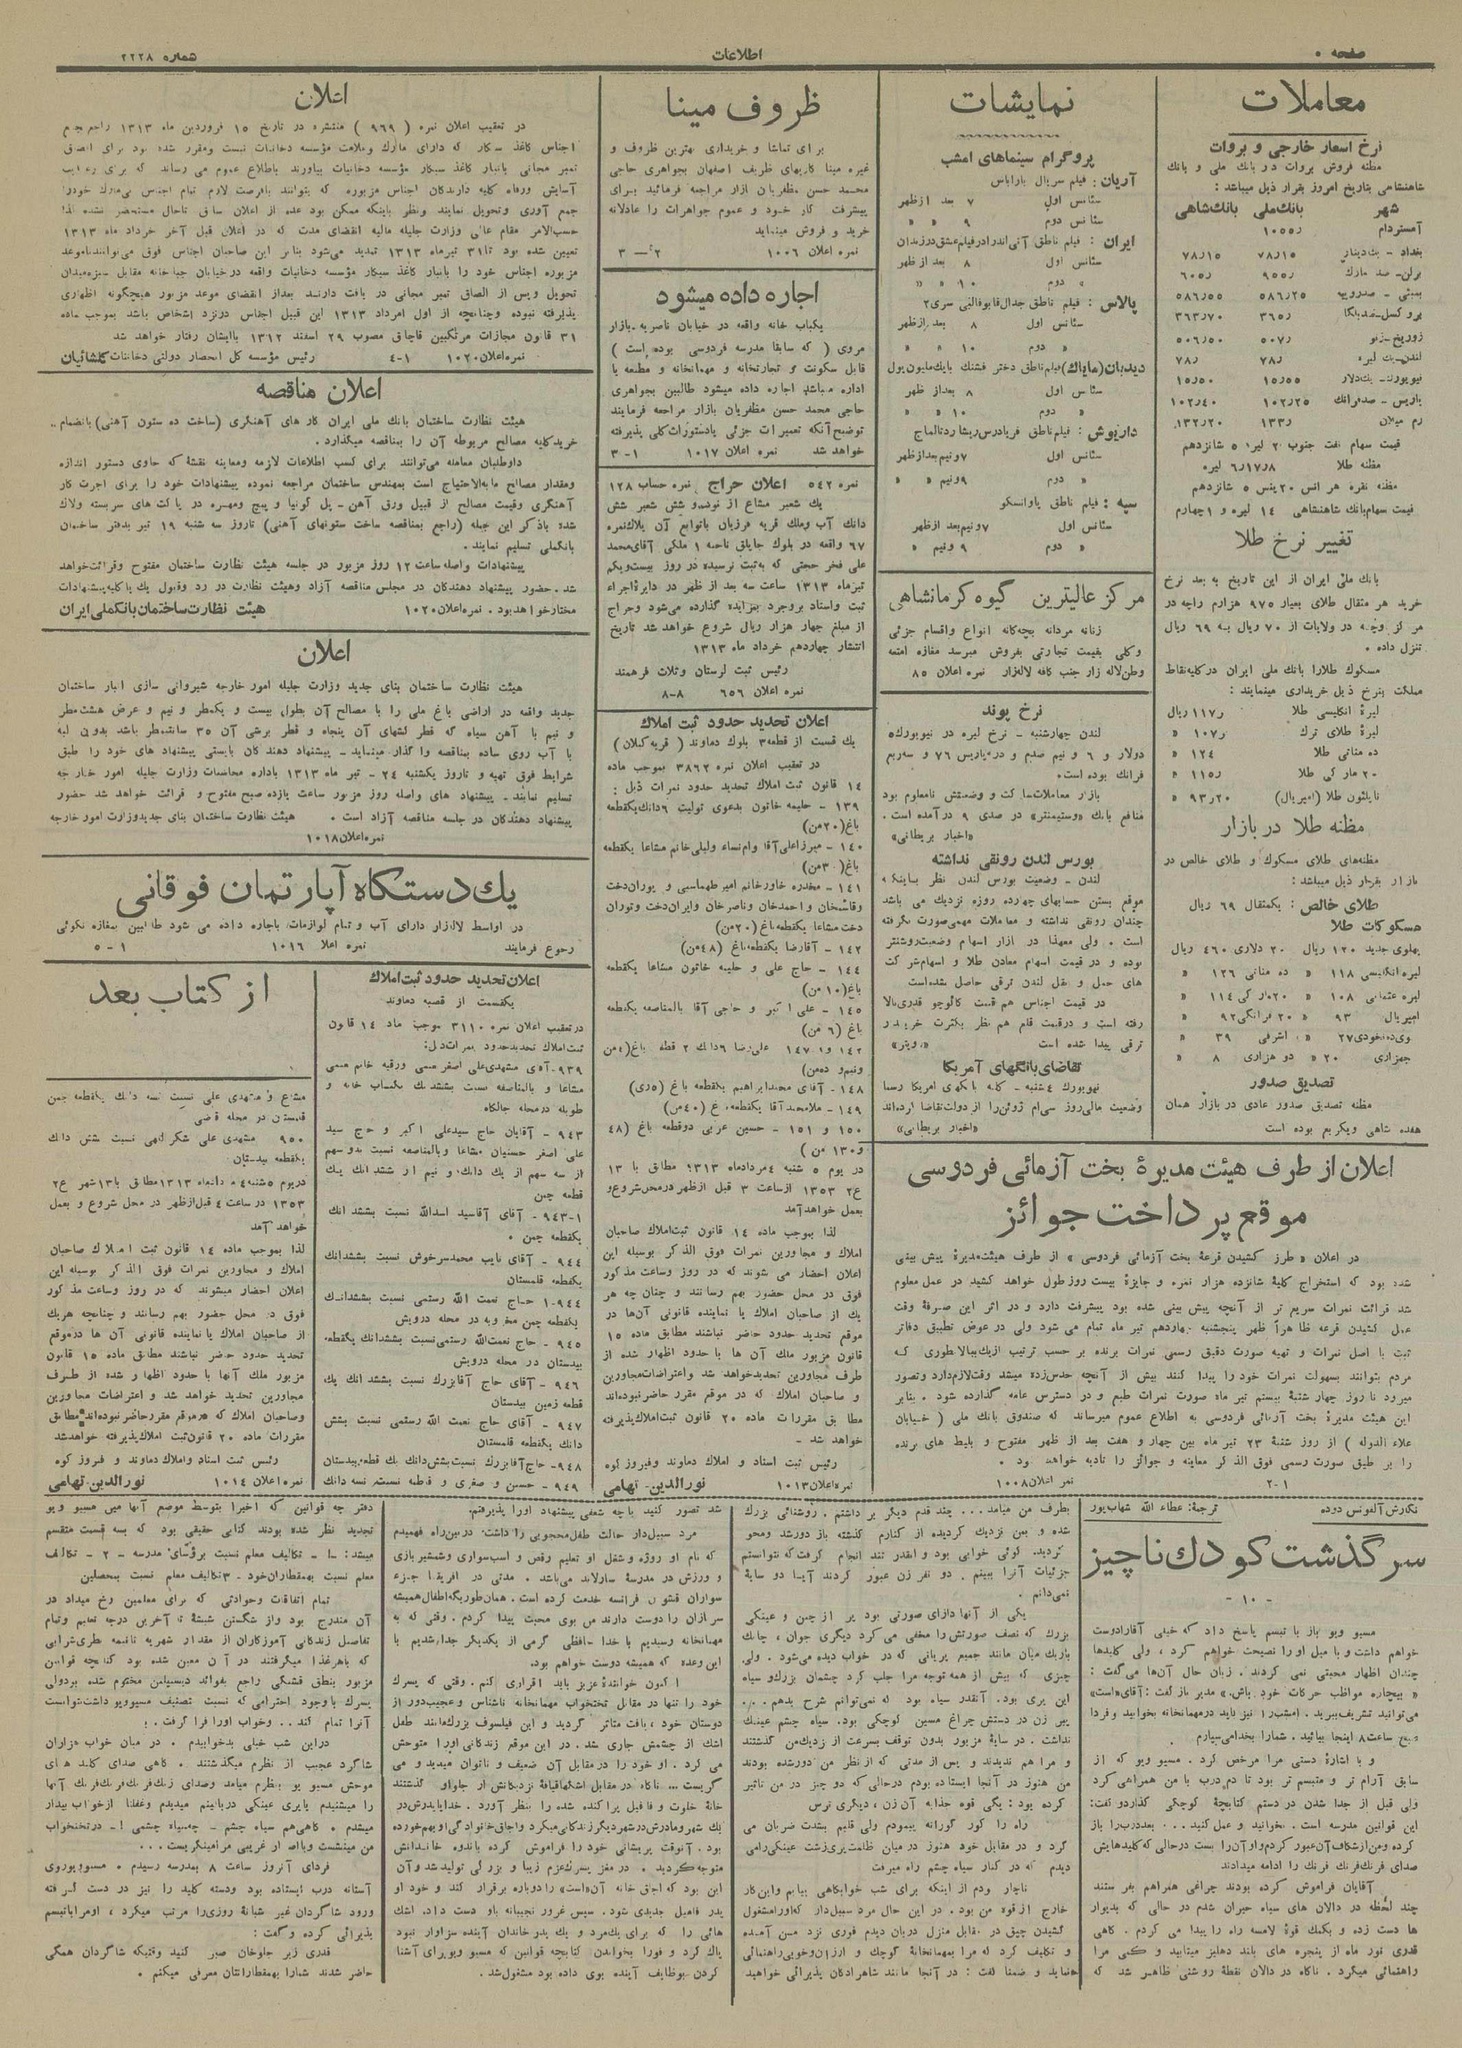 صفحه ۵
اطلاعات
شماره ۲۲۲۸
معاملات
نرخ اسعار خارجی و بروات
مظنه فروش بروات در بانك ملی و بانك
شاهنشاهی بتاریخ امروز بقرار ذیل میباشد :
شهر بانك‌ملی بانك‌شاهی
آمستردام ۱۰ر۵۵
بغداد - یك‌دینار ۷۸ر۱۵ ۷۸ر۱۵
برلن - صد مارك
بمبئی - صدروپیه ۵۸۶ر۲۵ ۵۸۶ر۵۵
بروکسل - صدبلگا ۳۶۵ر ۳۶۳ر۷۰
زوریخ - ۵۰۷ر ۵۰۶ر۵۰
لندن - یك لیره ۷۸ر ۷۸ر
نیویورك - یك‌دلار ۱۵ر۵۵ ۱۵ر۵۰
پاریس - صدفرانك ۱۰۲ر۲۵ ۱۰۲ر۴۰
رم میلان ۱۳۳ر ۱۳۲ر۲۰
قیمت سهام نفت جنوب ۲۰ لیره ۵ شانزدهم
مظنه طلا ۶ر۱۷ر۸ لیره
مظنه نقره هر انس ۲۰ پنس ۵ شانزدهم
قیمت سهام بانك شاهنشاهی ۱۴ لیره و ۱ چهارم
تغییر نرخ طلا
بانك ملی ایران از این تاریخ به بعد نرخ
خرید هر مثقال طلای بعیار ۹۷۵ هزارم راچه در
مرکز وچه در ولایات از ۷۰ ریال به ۶۹ ریال
تنزل داده .
مسکوك طلارا بانك ملی ایران در کلیه نقاط
مملکت بنرخ ذیل خریداری مینمایند :
لیرهٔ انگلیسی طلا ۱۱۷ر ریال
لیرهٔ طلای ترك ۱۰۷ر «
ده مناتی طلا ۱۲۴ «
۲۰ مارکی طلا ۱۱۵ر «
ناپلئون طلا (امپریال) ۹۳ر۲۰ «
مظنه طلا در بازار
مظنه‌های طلای مسکوك و طلای خالص در
بازار بقرار ذیل میباشد :
طلای خالص : یکمثقال ۶۹ ریال
مسکوکات طلا
پهلوی جدید ۱۲۰ ریال ۲۰ دلاری ۴۶۰ ریال
لیره انگلیسی ۱۱۸ « ده مناتی ۱۲۶ «
لیره عثمانی ۱۰۸ « ۲۰مارکی ۱۱۴ «
امپریال ۹۳ « ۲۰ فرانکی ۹۲ «
اشرفی ۳۹ «
چهزاری ۲۰ « دو هزاری ۸ «
تصدیق صدور
مظنه تصدیق صدور عادی در بازار همان
هفده شاهی ویکربع بوده است
نمایشات
پروگرام سینماهای امشب
آریان : فیلم سریال باراباس
سئانس اول ۷ بعد ازظهر
سئانس دوم ۹ « «
ایران : فیلم ناطق آنی اندرا در فیلم عشق در زندان
سئانس اول ۸ بعد از ظهر
« دوم ۱۰ « «
پالاس : فیلم ناطق جدال قابوقالبی سری۲
سئانس اول ۸ بعد ازظهر
« دوم ۱۰ « «
دیدبان (مایاك) فیلم ناطق دختر قشنك بایك‌ملیون پول
سئانس اول ۸ بعداز ظهر
« دوم ۱۰ « «
داریوش : فیلم ناطق فریادرس ریشارد تالماج
سئانس اول ۷ونیم بعدازظهر
« دوم ۹ونیم « «
سپه : فیلم ناطق پاوانسکو
سئانس اول ۷ونیم بعد ازظهر
« دوم ۹ ونیم «
مرکز عالیترین گیوه کرمانشاهی
زنانه مردانه بچه‌گانه انواع واقسام جزئی
وکلی بقیمت تجارتی بفروش میرسد مغازه امتعه
وطن لاله زار جنب کافه لاله‌زار نمره اعلان ۸۵
نرخ پوند
لندن چهارشنبه - نرخ لیره در نیویورك ۵
دولار و ۶ و نیم صدم و در پاریس ۷۶ و سه ربع
فرانك بوده است .
بازار معاملات ساکت و وضعیتش نامعلوم بود
منافع بانك «وستمینستر» در صدی ۹ درآمده است .
«اخبار بریطانی»
بورس لندن رونقی نداشته
لندن - وضعیت بورس لندن نظر باینکه
موقع بستن حسابهای چهارده روزه نزدیك می باشد
چندان رونقی نداشته و معاملات مهمی صورت نگرفته
است . ولی معهذا در بازار اسهام وضعیت روشنتر
بوده و در قیمت اسهام معادن طلا و اسهام شرکت
های حمل و نقل لندن ترقی حاصل شده است
در قیمت اجناس هم قیمت کائوچو قدری بالا
رفته است و در قیمت قلع هم نظر بکثرت خریدار
ترقی پیدا شده است «رویتر»
تقاضای بانکهای آمریکا
نیویورك ۴شنبه - کلیه بانکهای آمریکا رسما
وضعیت مالی روز سی‌ام ژوئن را از دولت تقاضا کرده‌اند
«اخبار بریطانی»
اعلان از طرف هیئت مدیرهٔ بخت آزمائی فردوسی
موقع پرداخت جوائز
در اعلان « طرز کشیدن قرعهٔ بخت آزمائی فردوسی » از طرف هیئت‌مدیرهٔ پیش بینی
شده بود که استخراج کلیهٔ شانزده هزار نمره و جایزهٔ بیست روز طول خواهد کشید در عمل معلوم
شد قرائت نمرات سریع تر از آنچه پیش بینی شده بود پیشرفت دارد و در اثر این صرفهٔ وقت
عمل کشیدن قرعه ظاهراً ظهر پنجشنبه چهاردهم تیر ماه تمام می شود ولی در عوض تطبیق دفاتر
ثبت با اصل نمرات و تهیه صورت دقیق رسمی نمرات برنده بر حسب ترتیب از یك ببالا بطوری که
مردم بتوانند بسهولت نمرات خود را پیدا کنند بیش از آنچه حدس‌زده میشد وقت لازم دارد وتصور
میرود تا روز چهار شنبهٔ بیستم تیر ماه صورت نمرات طبع و در دسترس عامه گذارده شود . بنابر
این هیئت مدیرهٔ بخت آزمائی فردوسی به اطلاع عموم میرساند که صندوق بانك ملی ( خیابان
علاء الدوله ) از روز شنبهٔ ۲۳ تیر ماه بین چهار و هفت بعد از ظهر مفتوح و بلیط های برنده
را بر طبق صورت رسمی فوق الذکر معاینه و جوائز را تادیه خواهند نمود .
نمره اعلان ۱۰۰۸ ۲-۱
ظروف مینا
برای تماشا و خریداری بهترین ظروف و
غیره مینا کاریهای ظریف اصفهان بجواهری حاجی
محمد حسن مظفریان بازار مراجعه فرمائید برای
پیشرفت کار خود و عموم جواهرات را عادلانه
خرید و فروش مینماید
نمره اعلان ۱۰۰۶ ۲ت - ۳
اجاره داده میشود
یکباب خانه واقعه در خیابان ناصریه - بازار
مروی ( که سابقا مدرسه فردوسی بوده است )
قابل سکونت و تجارتخانه و مهمانخانه و مطبعه یا
اداره میباشد اجاره داده میشود طالبین بجواهری
حاجی محمد حسن مظفریان بازار مراجعه فرمایند
توضیح آنکه تعمیرات جزئی یادستورات کلی پذیرفته
خواهد شد نمره اعلان ۱۰۱۷ ۱-۳
نمره ۵۴۲ اعلان حراج نمره حساب ۱۲۸
یك شعیر مشاع از نودوشش شعیر شش
دانك آب وملك قریه هرزیان باتوابع آن پلاك نمره
۶۷ واقعه در بلوك جاپلق ناحیه ۱ ملکی آقای محمد
علی فخر حجتی که به ثبت نرسیده در روز بیست ویکم
تیر ماه ۱۳۱۳ ساعت سه بعد از ظهر در دایرهٔ اجراء
ثبت واسناد بروجرد بمزایده گذارده می‌شود وحراج
از مبلغ چهار هزار ریال شروع خواهد شد تاریخ
انتشار چهاردهم خرداد ماه ۱۳۱۳
رئیس ثبت لرستان وثلاث فرهمند
نمره اعلان ۶۵۶ ۸-۸
اعلان تحدید حدود ثبت املاك
یك قسمت از قطعه۳ بلوك دماوند ( قریه گیلان )
در تعقیب اعلان نمره ۳۸۶۲ بموجب ماده
۱۴ قانون ثبت املاك تحدید حدود نمرات ذیل :
۱۳۹ - حلیمه خاتون بدعوی تولیت ۶دانك یکقطعه
باغ (۲۰من)
۱۴۰ - میرزاعلی آقا وام‌نساء ولیلی خانم مشاعا یکقطعه
باغ (۳۰من)
۱۴۱ - مخدره خاور خانم امیر طهماسبی و پوران‌دخت
وقاسمخان و احمدخان وناصرخان وایران‌دخت وتوران
دخت مشاعا یکقطعه باغ (۲۰من)
۱۴۲ - آقارضا یکقطعه باغ (۴۸من)
۱۴۴ - حاج علی و حلیمه خاتون مشاعا یکقطعه
باغ (۱۰من)
۱۴۵ - علی اکبر و حاجی آقا بالمناصفه یکقطعه
باغ (۶ من)
۱۴۶ و ۱۴۷ علیرضا ۶دانك ۲ قطعه باغ (۴من
ونیم و ده‌من)
۱۴۸ - آقای محمدابراهیم یکقطعه باغ
۱۴۹ - ملامحمد آقا یکقطعه باغ (۴۰من)
۱۵۰ و ۱۵۱ - حسین عربی دوقطعه باغ (۴۸
و ۱۳۰ من )
در یوم ۵ شنبه ۴مردادماه ۱۳۱۳ مطابق با ۱۳
ع۲ ۱۳۵۳ از ساعت ۳ قبل از ظهر در محل شروع و
بعمل خواهد آمد
لذا بموجب ماده ۱۴ قانون ثبت املاك صاحبان
املاك و مجاورین نمرات فوق الذکر بوسیله این
اعلان احضار می شوند که در روز وساعت مذکور
فوق در محل حضور بهم رسانند و چنان چه هر
یك از صاحبان املاك یا نماینده قانونی آن‌ها در
موقع تحدید حدود حاضر نباشند مطابق ماده ۱۵
قانون مزبور ملك آن ها با حدود اظهار شده از
طرف مجاورین تحدید خواهد شد واعتراضات مجاورین
و صاحبان املاك که در موقع مقرر حاضر نبوده‌اند
مطابق مقررات ماده ۲۰ قانون ثبت املاك پذیرفته
خواهد شد .
رئیس ثبت اسناد و املاك دماوند وفیروز کوه
نمره اعلان ۱۰۱۳ نورالدین تهامی
اعلان
در تعقیب اعلان نمره ( ۹۶۹ ) منتشره در تاریخ ۱۵ فروردین ماه ۱۳۱۳ راجع بجمع
اجناس کاغذ سیگار که دارای مارك وعلامت مؤسسه دخانیات نیست ومقرر شده بود برای الصاق
تمبر مجانی بانبار کاغذ سیگار مؤسسه دخانیات بیاورند باطلاع عموم می رساند که برای رعایت
آسایش ورفاه کلیه دارندگان اجناس مزبوره که بتوانند بافرصت لازم تمام اجناس بی‌مارك خودرا
جمع آوری وتحویل نمایند ونظر باینکه ممکن بود عده از اعلان سابق تاحال مستحضر نشده لذا
حسب‌الامر مقام عالی وزارت جلیله مالیه انقضای مدت که در اعلان قبل آخر خرداد ماه ۱۳۱۳
تعیین شده بود تا۳۱ تیرماه ۱۳۱۳ تمدید می‌شود بنابر این صاحبان اجناس فوق می‌توانند تاموعد
مزبوره اجناس خود را بانبار کاغذ سیگار مؤسسه دخانیات واقعه در خیابان جباخانه مقابل سبزه‌میدان
تحویل وپس از الصاق تمبر مجانی در یافت دارند بعداز انقضای موعد مزبور هیچگونه اظهاری
پذیرفته نبوده وچنانچه از اول امرداد ۱۳۱۳ این قبیل اجناس در نزد اشخاص باشد بموجب ماده
۳۱ قانون مجازات مرتکبین قاچاق مصوب ۲۹ اسفند ۱۳۱۲ باایشان رفتار خواهد شد
نمره اعلان ۱۰۲۰ ۱-۴ رئیس مؤسسه کل انحصار دولتی دخانیات گلشائیان
اعلان مناقصه
هیئت نظارت ساختمان بانك ملی ایران کار های آهنگری (ساخت ده ستون آهنی) بانضمام
خرید کلیه مصالح مربوطه آن را بمناقصه میگذارد .
داوطلبان معامله می‌توانند برای کسب اطلاعات لازمه ومعاینه نقشهٔ که حاوی دستور اندازه
ومقدار مصالح مابه‌الاحتیاج است بمهندس ساختمان مراجعه نموده پیشنهادات خود را برای اجرت کار
آهنگری وقیمت مصالح از قبیل ورق آهن - پل گونیا و پیچ ومهره در پاکت های سربسته ولاك
شده باذکر این جمله (راجع بمناقصه ساخت ستونهای آهنی) تاروز سه شنبه ۱۹ تیر بدفتر ساختمان
بانکملی تسلیم نمایند .
پیشنهادات واصله ساعت ۱۲ روز مزبور در جلسه هیئت نظارت ساختمان مفتوح وقرائت‌خواهد
شد . حضور پیشنهاد دهندگان در مجلس مناقصه آزاد وهیئت نظارت در رد وقبول یك یا کلیه پیشنهادات
مختار خواهد بود . نمره اعلان ۱۰۲۰ هیئت نظارت ساختمان بانکملی ایران
اعلان
هیئت نظارت ساختمان بنای جدید وزارت جلیله امور خارجه شیروانی سازی انبار ساختمان
جدید واقعه در اراضی باغ ملی را با مصالح آن بطول بیست و یکمتر و نیم و عرض هشت‌متر
و نیم با آهن سیاه که قطر لنبهای آن پنجاه و قطر برشی آن ۳۵ سانتیمتر باشد بدون لبه
با آب روی ساده بمناقصه وا گذار مینماید - پیشنهاد دهندگان بایستی پیشنهاد های خود را طبق
شرایط فوق تهیه و تاروز یکشنبه ۲۴ - تیر ماه ۱۳۱۳ باداره محاسبات وزارت جلیله امور خارجه
تسلیم نمایند . پیشنهاد های واصله روز مزبور ساعت یازده صبح مفتوح و قرائت خواهد شد حضور
پیشنهاد دهندگان در جلسه مناقصه آزاد است . هیئت نظارت ساختمان بنای جدید وزارت امور خارجه
نمره اعلان ۱۰۱۸
یك دستگاه آپارتمان فوقانی
در اواسط لاله‌زار دارای آب و تمام لوازمات باجاره داده می شود طالبین بمغازه نکوئی
رجوع فرمایند نمره اعلان ۱۰۱۶ ۱-۵
اعلان تحدید حدود ثبت املاك
یکقسمت از قصبه دماوند
در تعقیب اعلان نمره ۳۱۱۰ بموجب ماده ۱۴ قانون
ثبت املاك تحدید حدود نمرات ذیل :
۹۳۹ - آقای مشهدی علی اصغر مسی ورقیه خانم مسی
مشاعا و بالمناصفه نسبت بششدانك یکباب خانه و
طویله در محله چالکاه
۹۴۳ - آقایان حاج سیدعلی اکبر و حاج سید
علی اصغر حسنیان مشاعا وبالمناصفه نسبت بدو سهم
از سه سهم از یك دانك و نیم از ششدانك یك
قطعه چمن
۱-۹۴۳ - آقای آقاسید اسدالله نسبت بششدانك
یکقطعه چمن .
۹۴۴ - آقای نایب محمدسرخوش نسبت بششدانك
یکقطعه قلمستان
۱-۹۴۴ حاج نعمت الله رستمی نسبت بششدانك
یکقطعه چمن مخروبه در محله درویش
۹۴۵ - حاج نعمت‌الله رستمی نسبت بششدانك یکقطعه
بیدستان در محله درویش
۹۴۶ - آقای حاج آقابزرك نسبت بششدانك یك
قطعه زمین بیدستان
۹۴۷ - آقای حاج نعمت الله رستمی نسبت بشش
دانك یکقطعه قلمستان
۹۴۸ - حاج آقابزرك نسبت بشش‌دانك یك قطعه بیدستان
۹۴۹ - حسین و صغری و فاطمه نسبت بسه دانك
از کتاب بعد
مشاع و مشهدی علی نسبت بسه دانك یکقطعه چمن
قلمستان در محله قاضی
۹۵۰ مشهدی علی شکراللهی نسبت بشش دانك
یکقطعه بیدستان
در یوم ۵شنبه ۴ مردادماه ۱۳۱۳ مطابق با ۱۳شهر ع۲
۱۳۵۳ در ساعت ۴ قبل از ظهر در محل شروع و بعمل
خواهد آمد
لذا بموجب ماده ۱۴ قانون ثبت املاك صاحبان
املاك و مجاورین نمرات فوق الذکر بوسیله این
اعلان احضار میشوند که در روز وساعت مذکور
فوق در محل حضور بهم رسانند و چنانچه هریك
از صاحبان املاك یا نماینده قانونی آن ها در موقع
تحدید حدود حاضر نباشند مطابق ماده ۱۵ قانون
مزبور ملك آنها با حدود اظهار شده از طرف
مجاورین تحدید خواهد شد و اعتراضات مجاورین
وصاحبان املاك که در موقع مقرر حاضر نبوده‌اند مطابق
مقررات ماده ۲۰ قانون ثبت املاك پذیرفته خواهد شد
رئیس ثبت اسناد واملاك دماوند و فیروز کوه
نمره اعلان ۱۰۱۴ نورالدین تهامی
نگارش آلفونس دوده
ترجمهٔ: عطاء الله شهاب‌پور
سرگذشت کودك ناچیز
- ۱۰ -
مسیو ویو باز با تبسم پاسخ داد که خیلی آقارادوست
خواهم داشت و با میل اورا نصیحت خواهم کرد ، ولی کلیدها
چندان اظهار محبتی نمی کردند . زبان حال آن‌ها می‌گفت :
« بیچاره مواظب حرکات خود باش . » مدیر باز گفت : آقای «است»
می‌توانید تشریف ببرید . امشب را نیز باید در مهمانخانه بخوابید و فردا
صبح ساعت ۸ اینجا بیائید . شمارا بخدا می‌سپارم
و با اشارهٔ دستی مرا مرخص کرد . مسیو ویو که از
سابق آرام تر و متبسم تر بود تا دم درب با من همراهی کرد
ولی قبل از جدا شدن در دستم کتابچهٔ کوچکی گذارد و گفت :
این قوانین مدرسه است . بخوانید و عمل کنید . . . بعد درب را باز
کرده ومن از شکاف آن عبور کردم و او آن را بست در حالی که کلیدهایش
صدای فرنك فرنك فرنك را ادامه میدادند
آقایان فراموش کرده بودند چراغی همراهم بفر ستند
چند لحظه در دالان های سیاه حیران شدم در حالی که بدیوار
ها دست زده و بکمك قوهٔ لامسه راه را پیدا می کردم . گاهی
قدری نور ماه از پنجره های بلند دهلیز میتابید و کمی مرا
راهنمائی میکرد . ناگاه در دالان نقطهٔ روشنی ظاهر شد که
بطرف من میامد . . . چند قدم دیگر بر داشتم . روشنائی بزرك
شده و بمن نزدیك گردیده از کنارم گذشته باز دور شد و محو
گردید . گوئی خوابی بود و اینقدر تند انجام گرفت که نتوانستم
جزئیات آنرا ببینم . دو نفر زن عبور کردند آیا دو سایهٔ
نمی‌دانم .
یکی از آنها دارای صورتی بود پر از چین و عینکی
بزرك که نصف صورتش را مخفی می کرد دیگری جوان ، چابك
باریك میان مانند جمیع پریانی که در خواب دیده می‌شود . ولی
چیزی که بیش از همه توجه مرا جلب کرد چشمان بزرك و سیاه
این پری بود . آنقدر سیاه بود که نمی‌توانم شرح بدهم . . .
پیر زن در دستش چراغ مسین کوچکی بود . سیاه چشم عینك
نداشت . در سایهٔ مزبور بدون توقف بسرعت از نزدیك من گذشتند
و مرا هم ندیدند و پس از مدتی که از نظر من دور شده بودند
من هنوز در آنجا ایستاده بودم در حالی که دو چیز در من تاثیر
کرده بود : یکی قوه جذابه آن زن ، دیگری ترس
راه را کور کورانه پیمودم ولی قلبم بشدت ضربان می
کرد و در مقابل خود هنوز در میان ظلمت پری زشت عینکی را می
دیدم که در کنار سیاه چشم راه میرفت
ناچار بودم از اینکه برای شب خوابگاهی بیابم واین کار
خارج از قوه من بود . در این حال مرد سبیل‌دار که اورا مشغول
کشیدن چپق در مقابل منزل دربان دیدم فوری نزد من آمده
و تکلیف کرد که مرا بمهمانخانهٔ کوچك و ارزان وخوبی راهنمائی
نماید و ضمنا گفت : در آنجا مانند شاهزادگان پذیرائی خواهید
شد تصور کنید باچه شعفی پیشنهاد اورا پذیرفتم .
مرد سبیل دار حالت طفل محجوبی را داشت . در بین راه فهمیدم
که نام او روژه و شغل او تعلیم رقص و اسب سواری وشمشیر بازی
و ورزش در مدرسهٔ سارلاند می‌باشد . مدتی در افریقا جزء
سواران قشون فرانسه خدمت کرده است . همان‌طوریکه اطفال همیشه
سربازان را دوست دارند من بوی محبت پیدا کردم . وقتی که به
مهمانخانه رسیدیم با خدا حافظی گرمی از یکدیگر جدا شدیم با
این وعده که همیشه دوست خواهیم بود .
اکنون خوانندهٔ عزیز باید اقراری کنم . وقتی که پسرك
خود را تنها در مقابل تختخواب مهمانخانه ناشناس وعجیب دور از
دوستان خود ، یافت متاثر گردید و این فیلسوف بزرك مانند طفل
اشك از چشمش جاری شد . در این موقع زندگانی اورا متوحش
می کرد . او خود را در مقابل آن ضعیف و ناتوان میدید و می
گریست . . . ناگاه در مقابل اشکها قیافهٔ نزدیکانش از جلو او گذشتند
خانهٔ خلوت و فامیل پراکنده شده را بنظر آورد . خدایا پدرش در
یك شهر ومادرش در شهر دیگر زندگانی میکرد واجاق خانوادگی او بهم خورده
بود . آنوقت پریشانی خود را فراموش کرده باندوه خاندانش
متوجه گردید . در مغز پسرك عزم زیبا و بزرگی تولید شد وآن
این بود که اجاق خانه آن «است» را دوباره برقرار کند و خود او
پدر فامیل جدیدی شود . سپس غرور نجیبانه باو دست داد . اشك
هائی را که برای یك مرد و یك پدر خاندان آینده سزاوار نبود
پاك کرد و فورا بخواندن کتابچه قوانین که مسیو ویو برای آشنا
کردن بوظایف آینده بوی داده بود مشغول شد .
دفتر چه قوانین که اخیرا بتوسط موضع آنها یعنی مسیو ویو
تجدید نظر شده بودند کتابی حقیقی بود که بسه قسمت منقسم
میشد : ۱ - تکالیف معلم نسبت برؤسای مدرسه - ۲ - تکالیف
معلم نسبت بهمقطاران خود - ۳ تکالیف معلم نسبت بمحصلین
تمام اتفاقات وحوادثی که برای معلمین رخ میداد در
آن مندرج بود واز شکستن شیشهٔ تا آخرین درجه تعلیم وتمام
تفاصیل زندگانی آموزگاران از مقدار شهریه تا نیمه بطری شرابی
که باهر غذا میگرفتند در آن معین شده بود کتابچه قوانین
مزبور بنطق قشنگی راجع بفوائد دیسیپلین مختوم شده بود ولی
پسرك با وجود احترامی که نسبت تصنیف مسیو ویو داشت نتوانست
آنرا تمام کند . . وخواب اورا فرا گرفت . !
در این شب خیلی بدخوابیدم . در میان خواب هزاران
شاگرد عجیب از نظرم میگذشتند . گاهی صدای کلید های
موحش مسیو یو بنظرم میامد وصدای زنك فرنك فرنك فرنك آنها
را میشنیدم یا پری عینکی در بالینم میدیدم وغفلتا از خواب بیدار
میشدم . گاهی هم سیاه چشم - چه سیاه چشمی ! - در تختخواب
من مینشست وبااصرار غریبی مرا مینگریست . . .
فردای آنروز ساعت ۸ بمدرسه رسیدم . مسیو ویو روی
آستانه درب ایستاده بود ودسته کلید را نیز در دست گرفته
ورود شاگردان غیر شبانهٔ روزی را مرتب میکرد ، او مرا با تبسم
پذیرائی کرده و گفت :
قدری زیر جلوخان صبر کنید وقتیکه شاگردان همگی
حاضر شدند شمارا بهمقطارانتان معرفی میکنم .